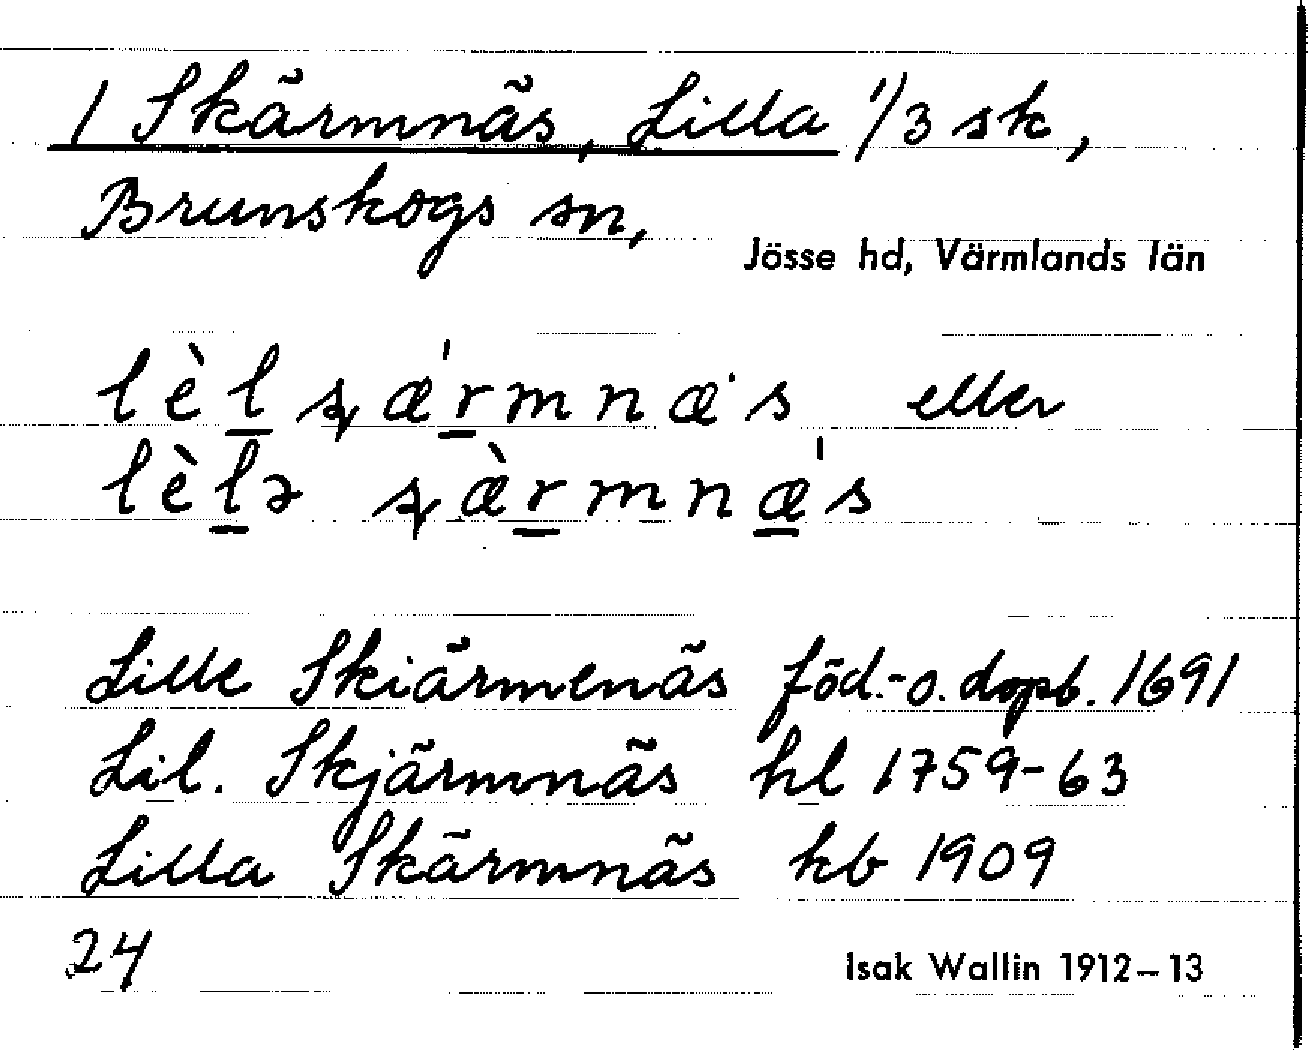 1 Skärmnäs, Lilla 1/3 sk,
Brunskogs sn,
Jösse hd, Värmlands län
lèl̲ ʂǽr̲mnæ·s eller
lèl̲ə ʂæ̀r̲mnǽ̲s
Lille Skiärmenäs föd.-o. dopb. 1691
Lil. Skjärmnäs hl 1759-63
Lilla Skärmnäs kb 1909
24
Isak Wallin 1912–13